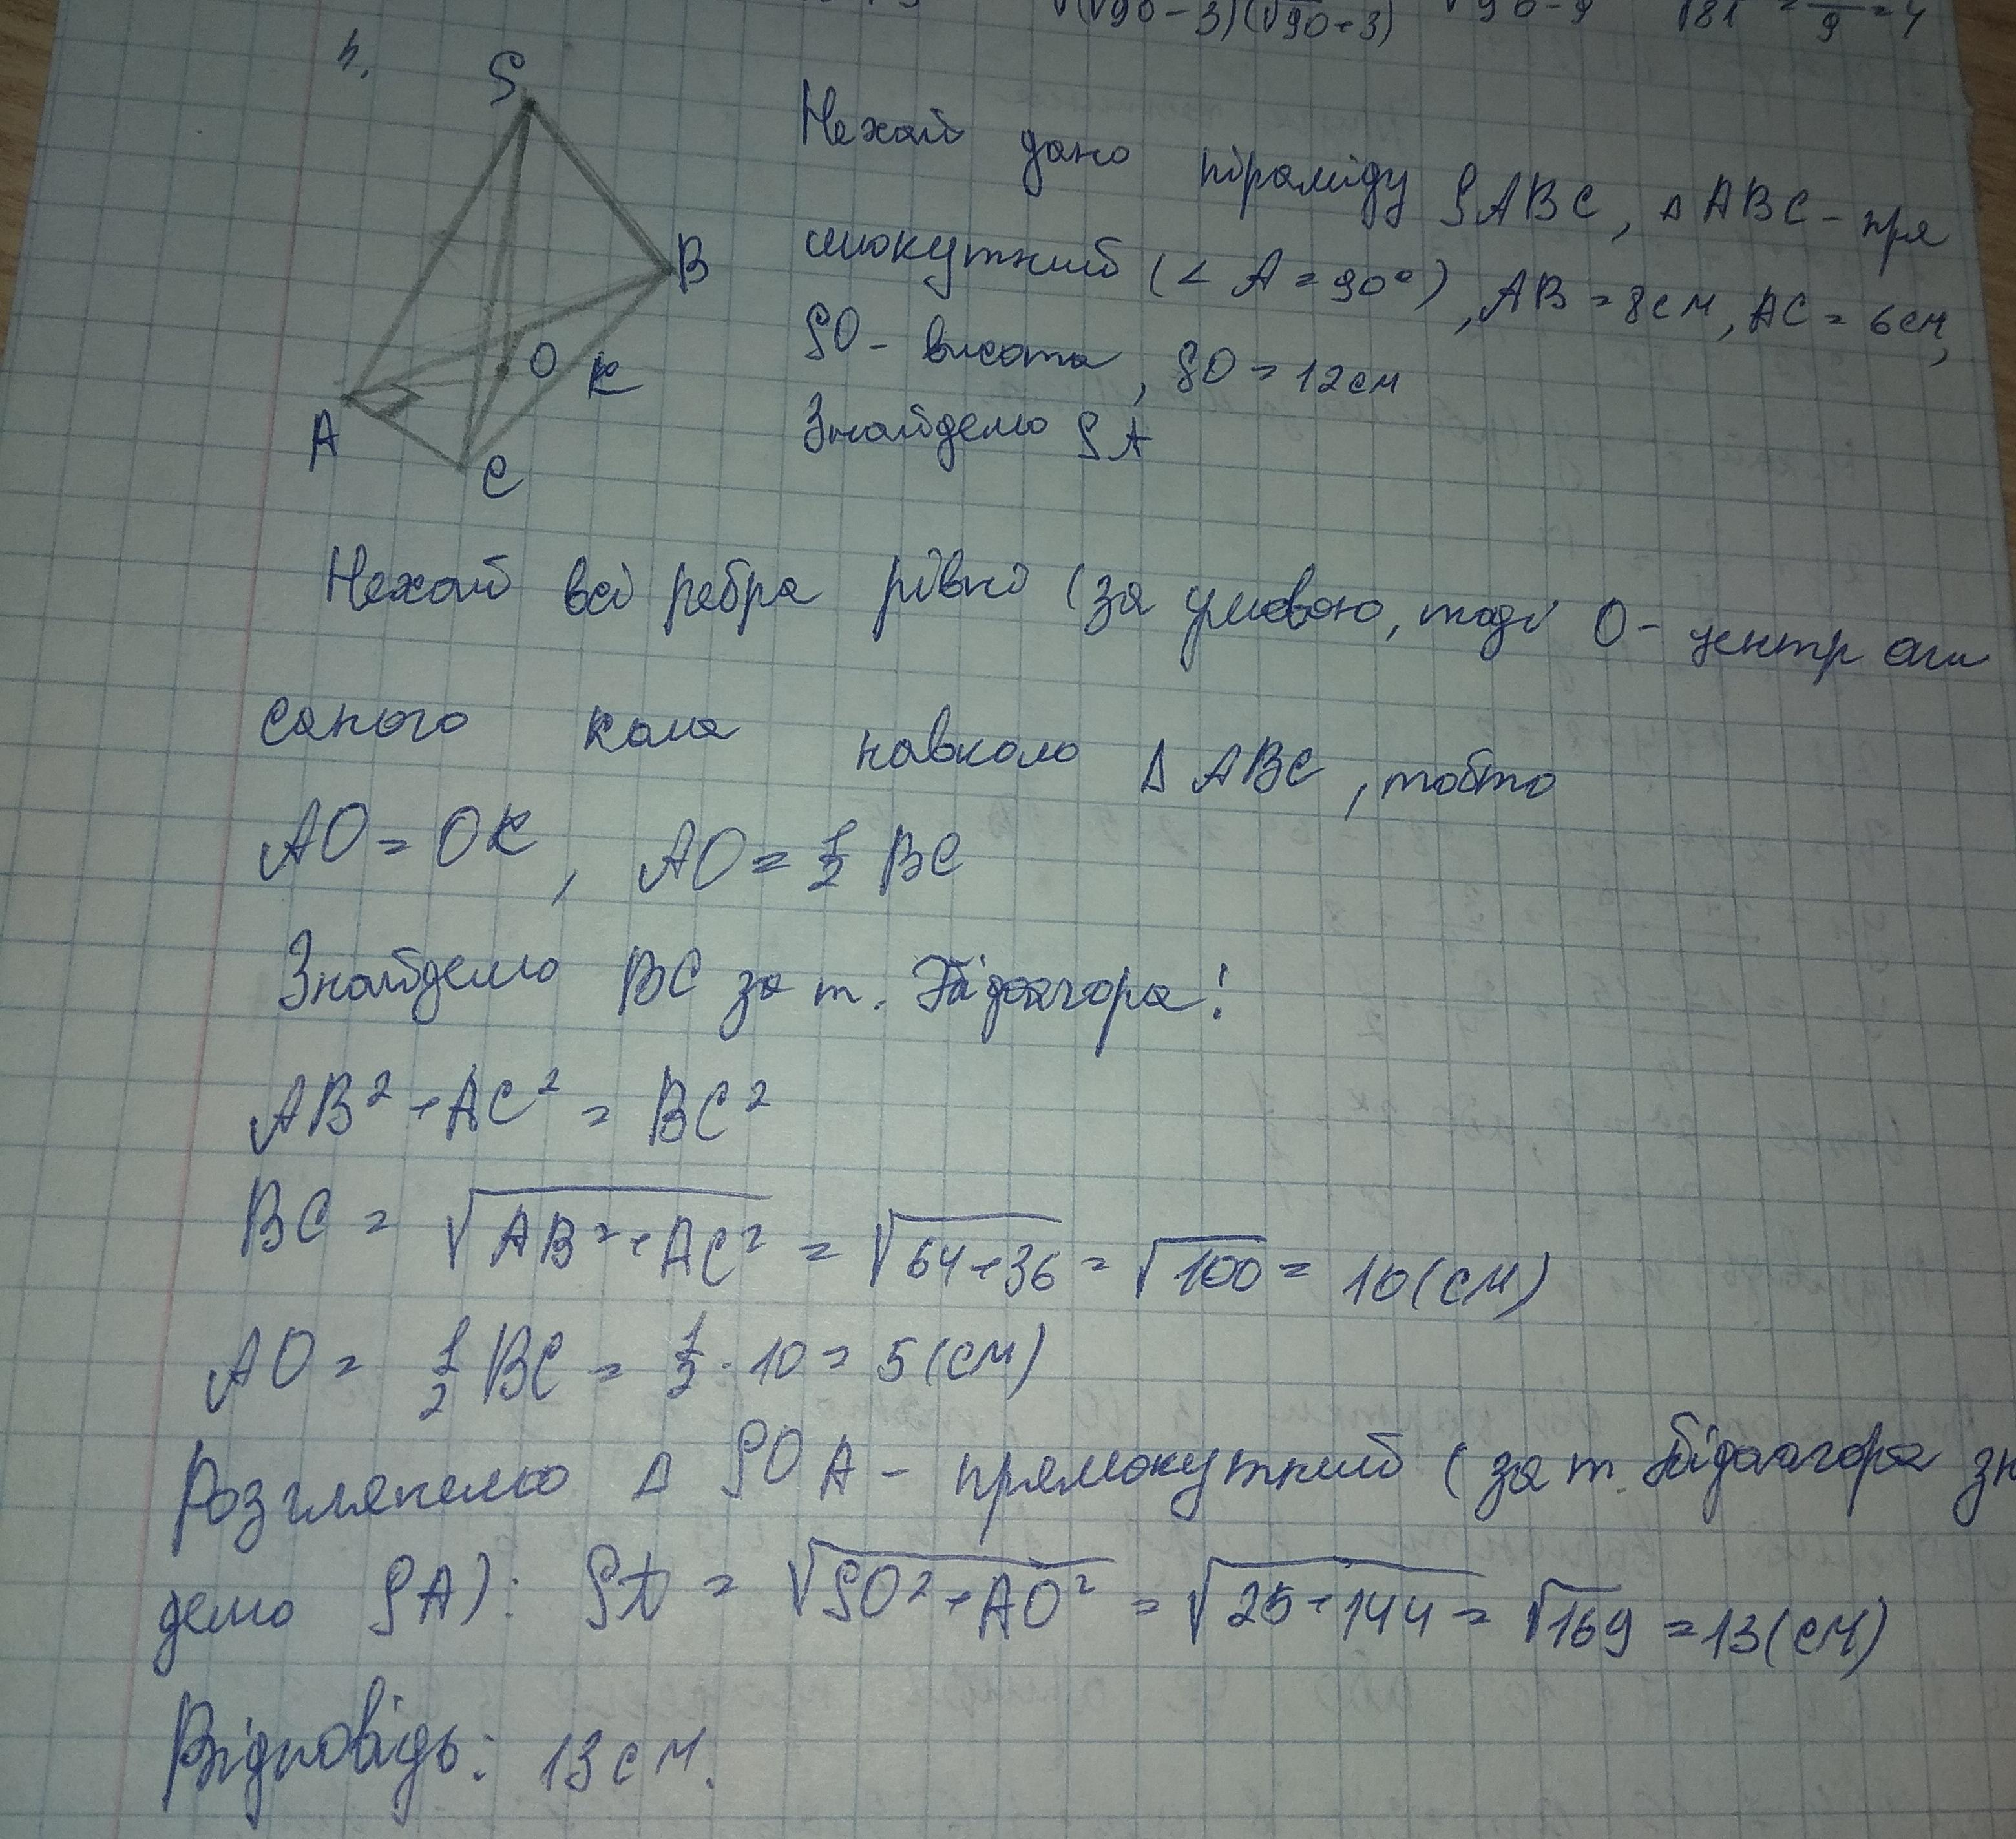 √(√90-3)(√90+3) √90-9 √81 = 9 = 4
4.
S
B
O
K
A
C
Нехай дано піраміду SABC, △ABC - пря
мокутний (∠A = 90°), AB = 8см, AC = 6см,
SO - висота, SO = 12см
Знайдемо SA
Нехай всі ребра рівні (за умовою, тоді O - центр опи
саного кола навколо △ABC, тобто
AO = OK, AO = 1/2 BC
Знайдемо BC за т. Піфагора:
AB² + AC² = BC²
BC = √AB² + AC² = √64+36 = √100 = 10(см)
AO = 1/2 BC = 1/2 · 10 = 5(см)
Розглянемо △SOA - прямокутний (за т. Піфагора зн
демо SA): SA = √SO² + AO² = √25+144 = √169 = 13(см)
Відповідь: 13см.